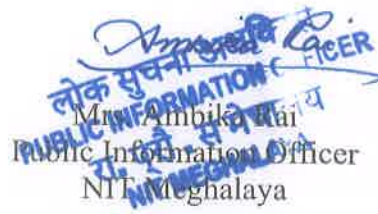 Ambika Rai
लोक सूचना अधिकारी
PUBLIC INFORMATION OFFICER
रा. प्रौ. सं मेघालय
NIT MEGHALAYA
Mrs. Ambika Rai
Public Information Officer
NIT Meghalaya